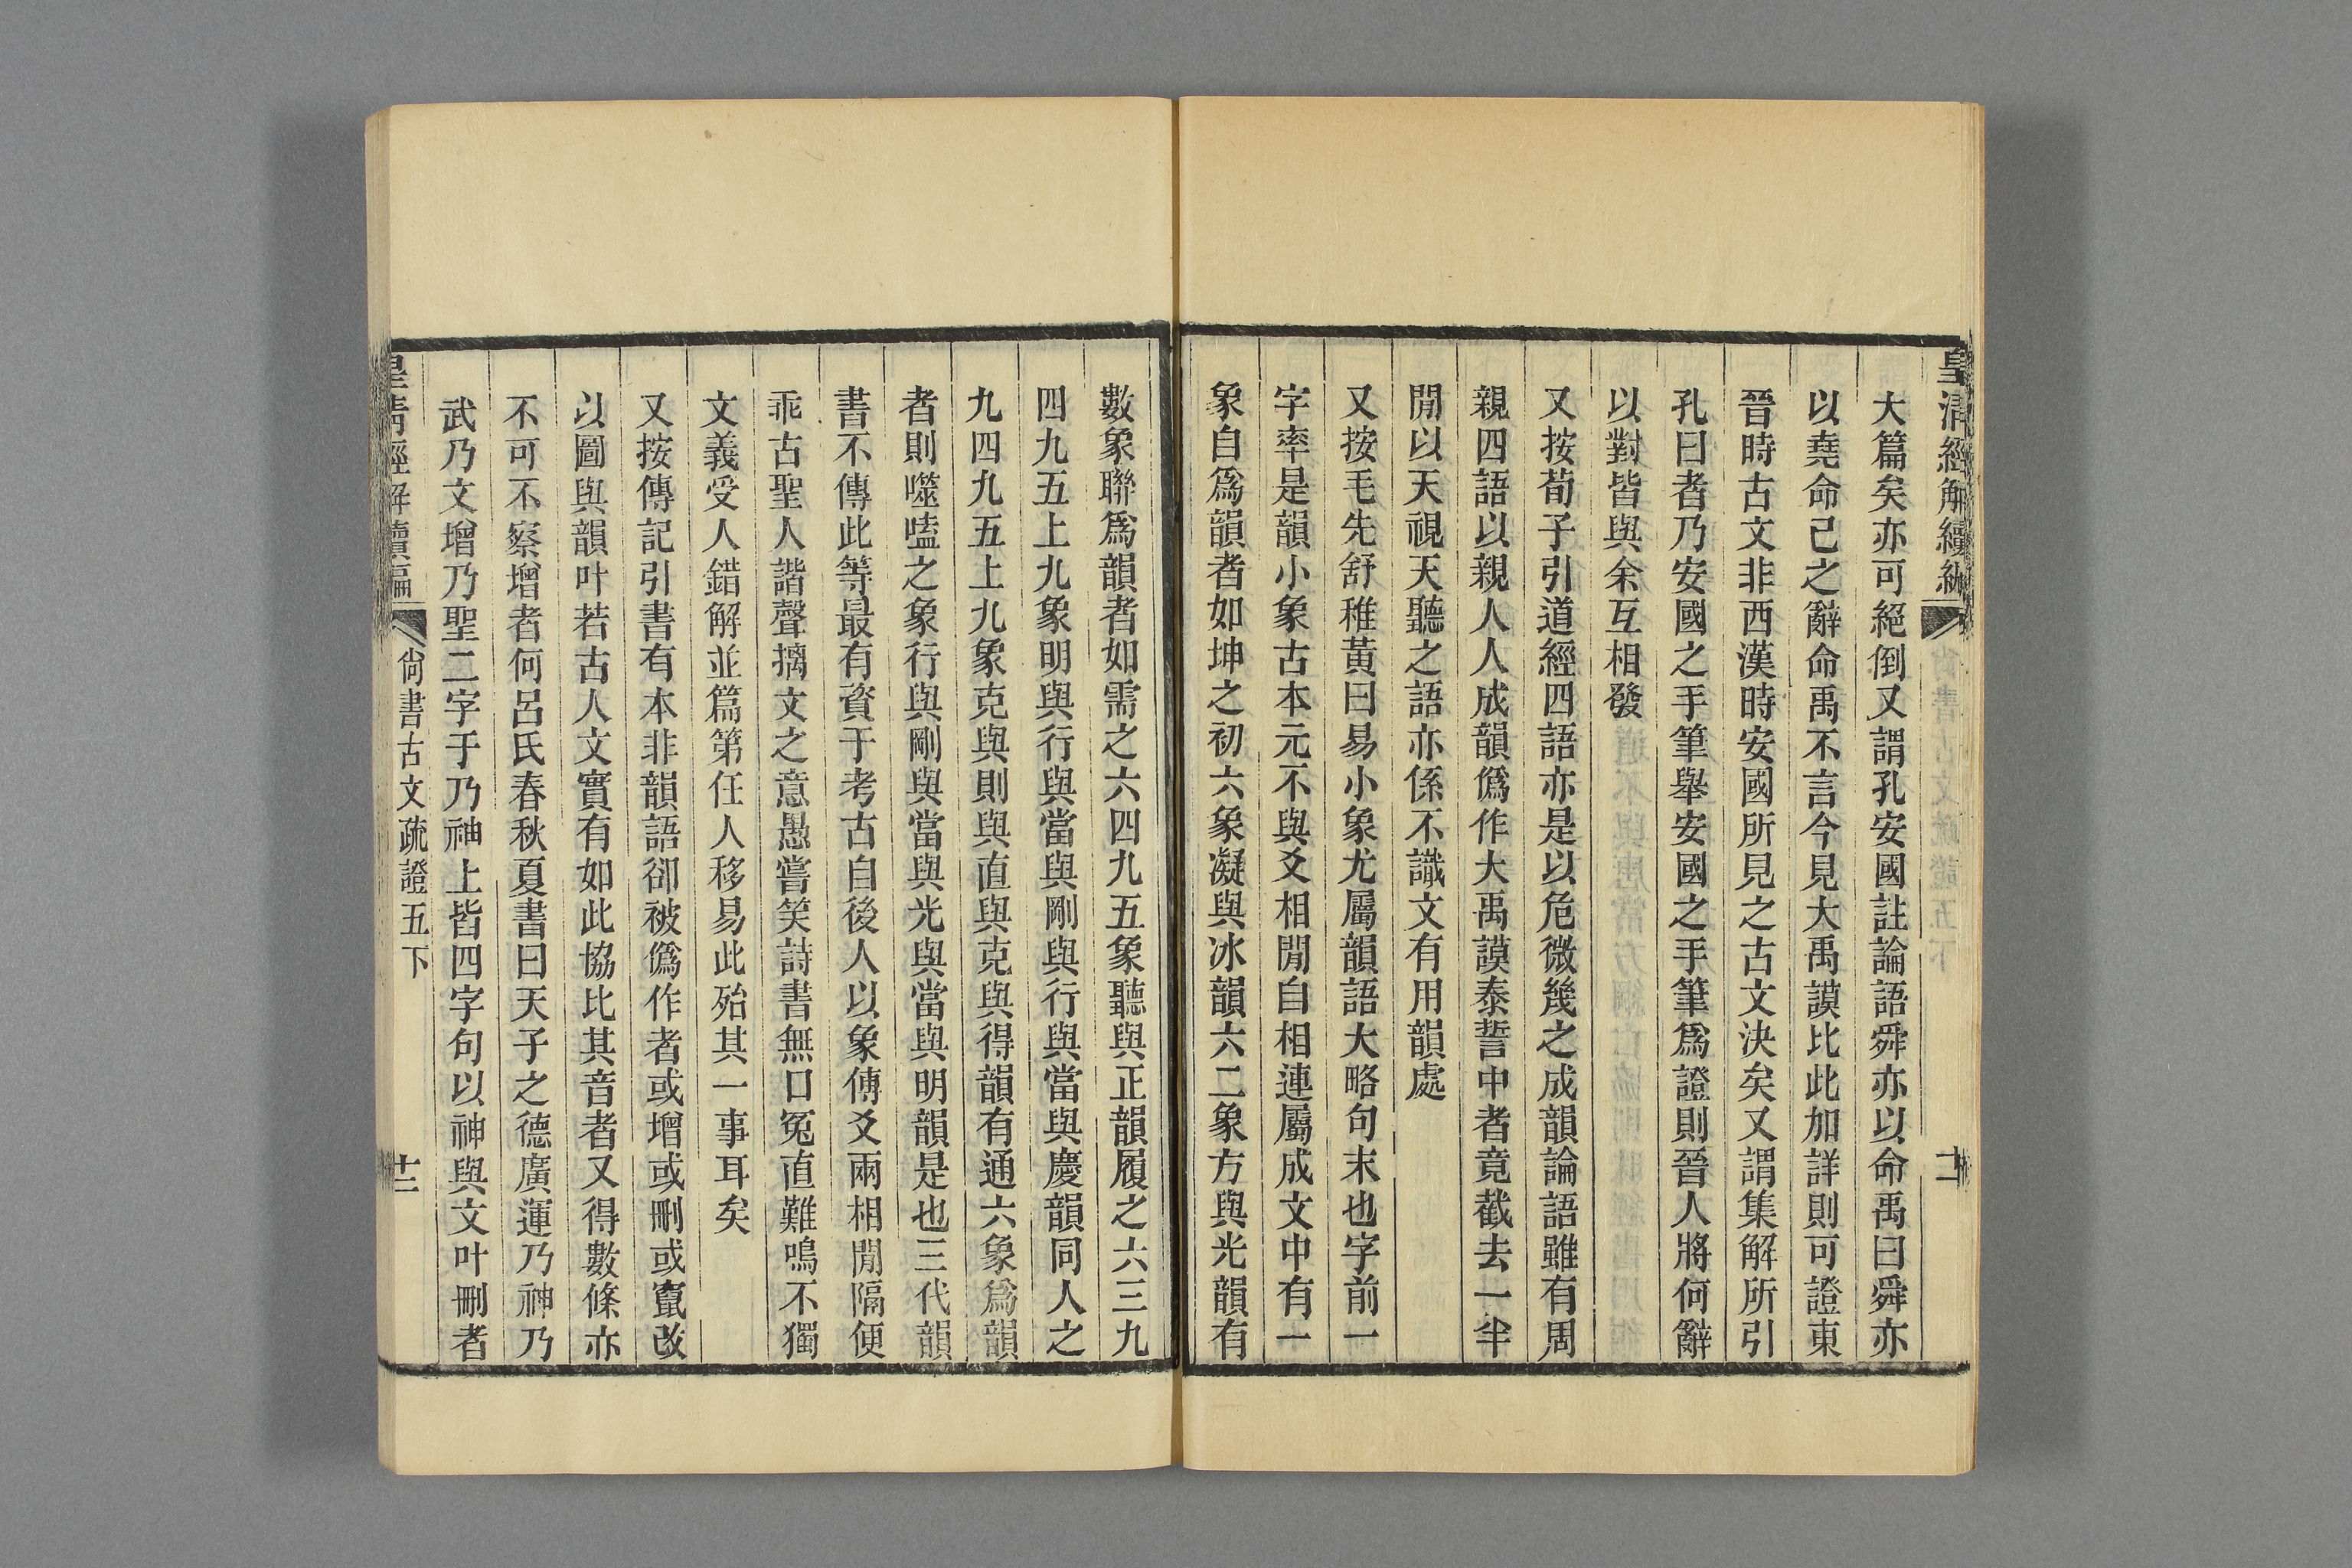 皇清經解續編
十二
大篇矣亦可絕倒又謂孔安國註論語舜亦以命禹曰舜亦
以堯命己之辭命禹不言今見大禹謨比此加詳則可證東
晉時古文非西漢時安國所見之古文決矣又謂集解所引
孔曰者乃安國之手筆舉安國之手筆爲證則晉人將何辭
以對皆與余互相發
又按荀子引道經四語亦是以危微幾之成韻論語雖有周
親四語以親人人成韻僞作大禹謨泰誓中者竟截去一半
閒以天視天聽之語亦係不識文有用韻處
又按毛先舒稚黃曰易小象尤屬韻語大略句末也字前一
字率是韻小象古本元不與爻相閒自相連屬成文中有一
象自爲韻者如坤之初六象凝與冰韻六二象方與光韻有
數象聯爲韻者如需之六四九五象聽與正韻履之六三九
四九五上九象明與行與當與剛與行與當與慶韻同人之
九四九五上九象克與則與直與克與得韻有通六象爲韻
者則噬嗑之象行與剛與當與光與當與明韻是也三代韻
書不傳此等最有資于考古自後人以象傅爻兩相閒隔便
乖古聖人諧聲摛文之意愚嘗笑詩書無口冤直難鳴不獨
文義受人錯解並篇第任人移易此殆其一事耳矣
又按傳記引書有本非韻語卻被僞作者或增或刪或竄改
以圖與韻叶若古人文實有如此協比其音者又得數條亦
不可不察增者何呂氏春秋夏書曰天子之德廣運乃神乃
武乃文增乃聖二字于乃神上皆四字句以神與文叶刪者
皇清經解續編
尙書古文疏證五下
十三